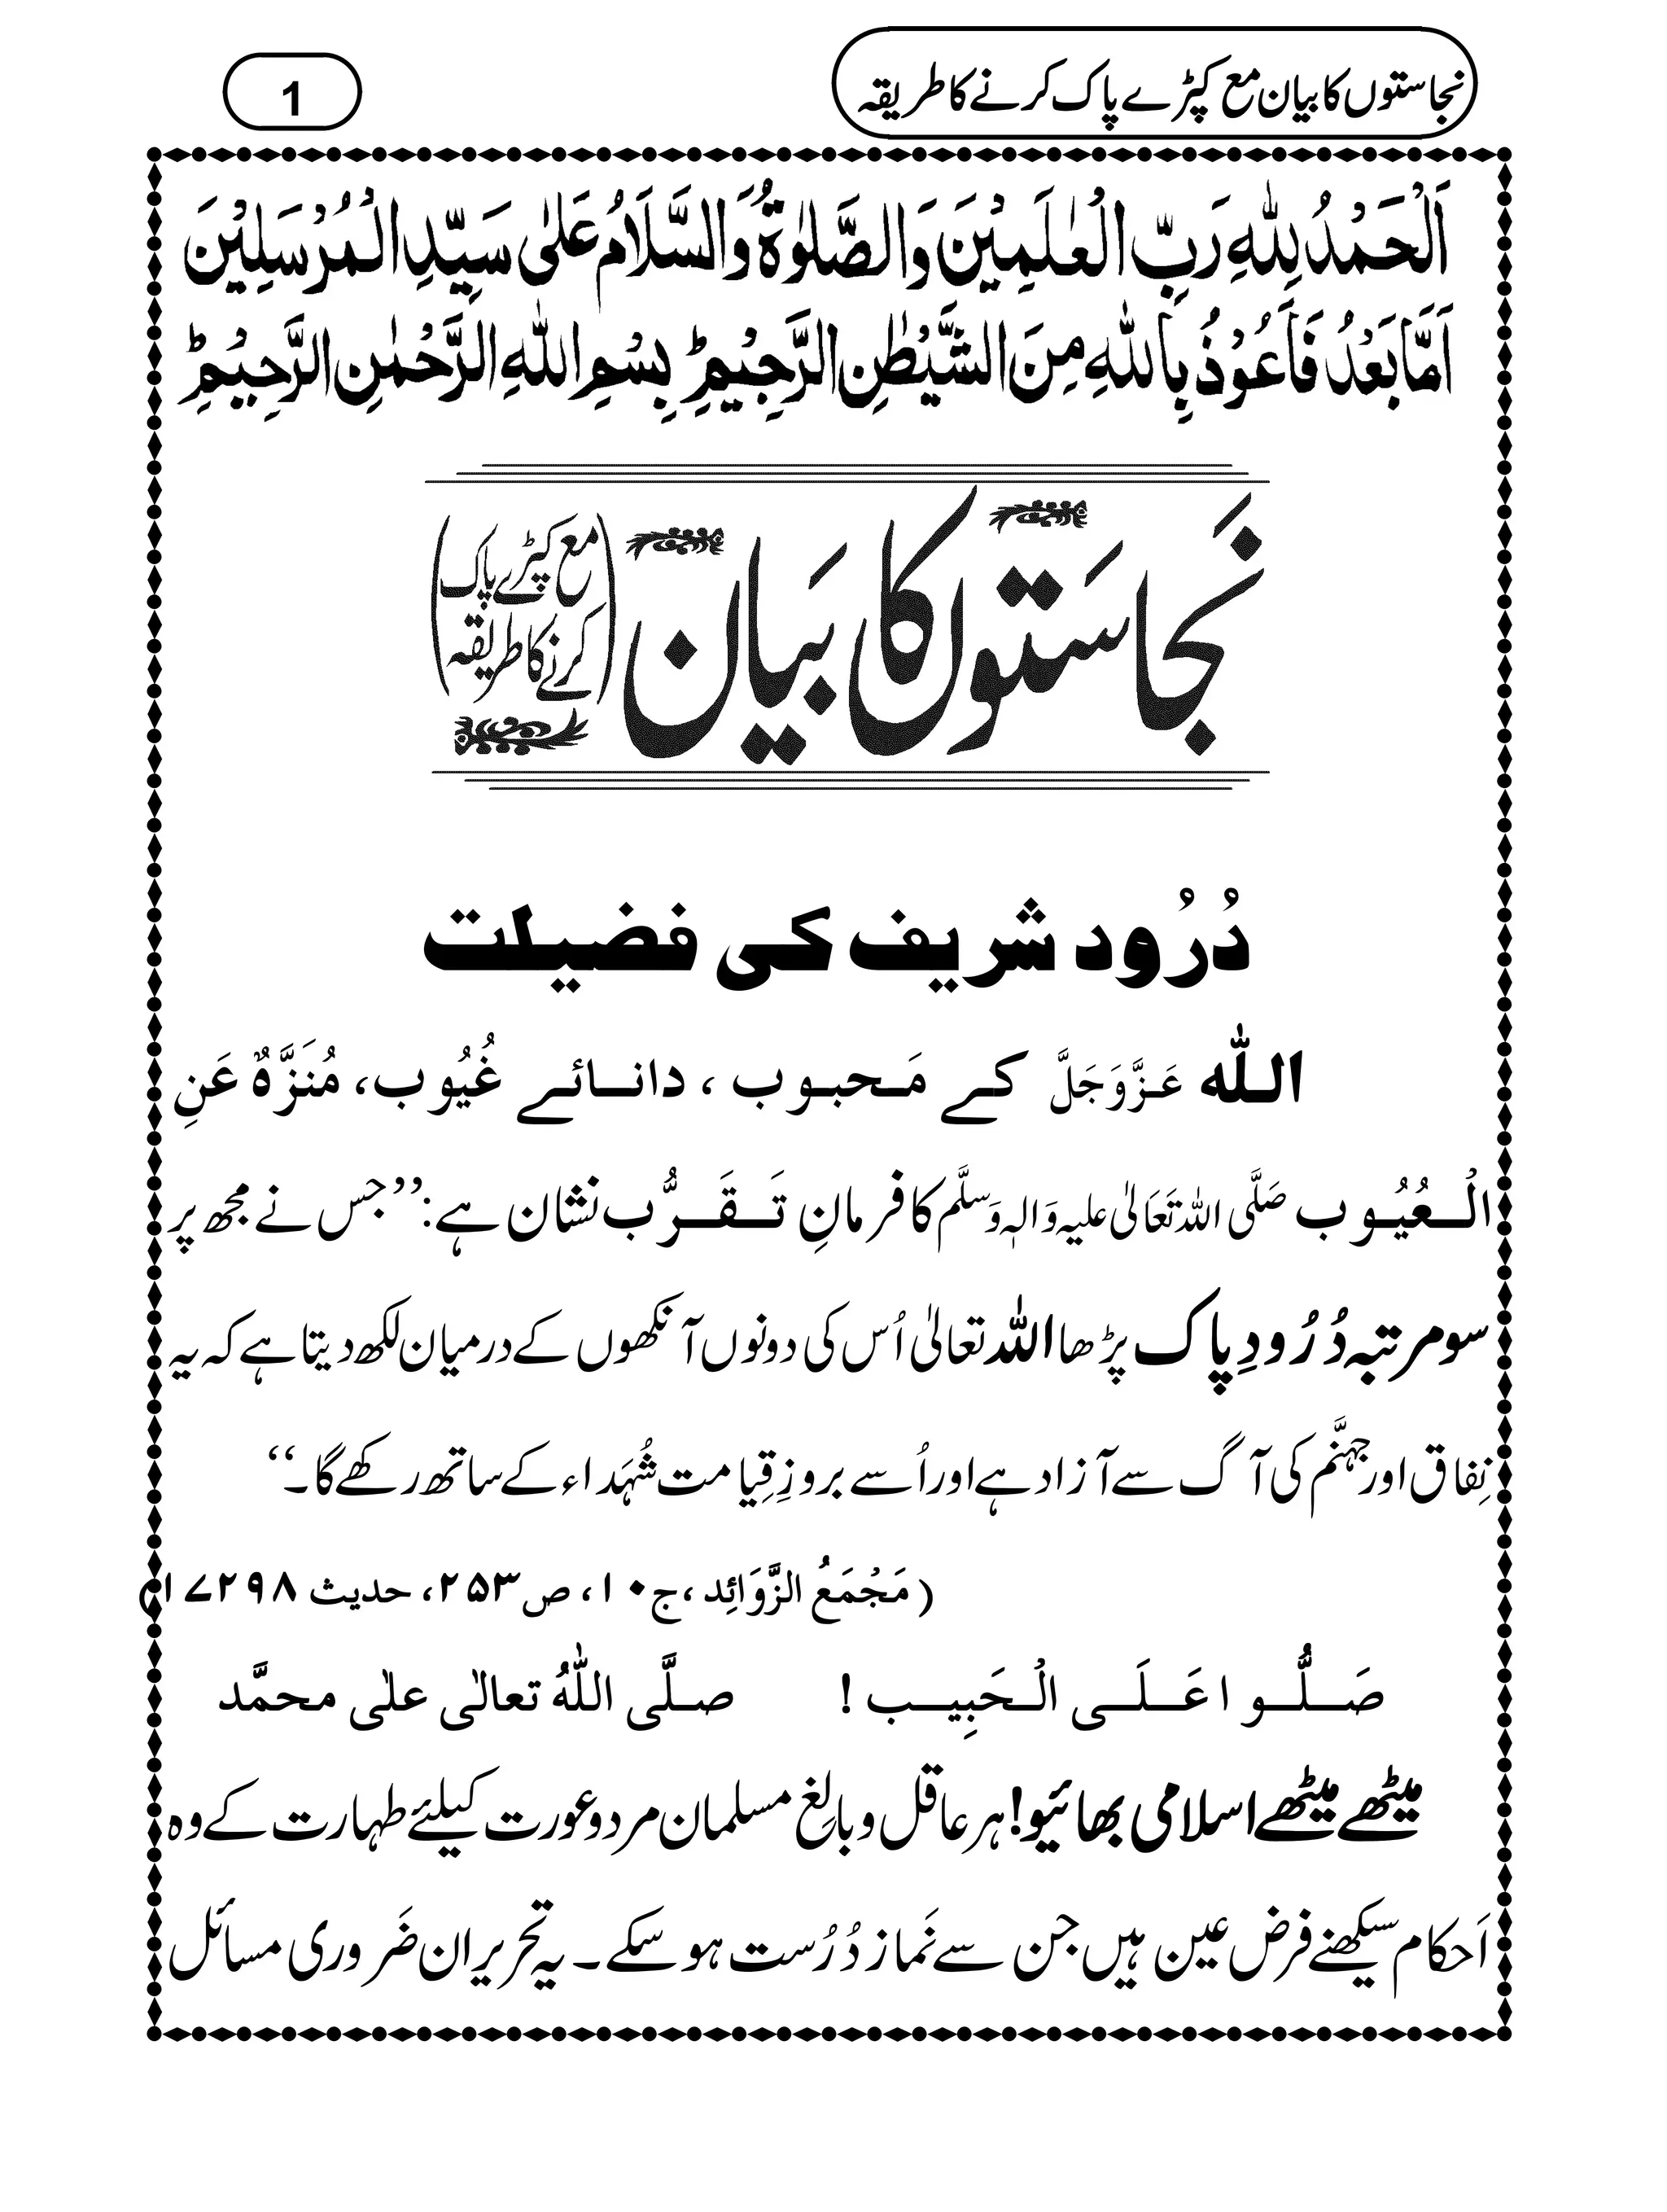 نجاستوں کا بیان مع کپڑے پاک کرنے کا طریقہ
1
اَلْحَمْدُ لِلّٰهِ رَبِّ الْعٰلَمِيْنَ وَالصَّلٰوةُ وَالسَّلَامُ عَلٰى سَيِّدِ الْمُرْسَلِيْنَ
اَمَّا بَعْدُ فَاَعُوْذُ بِاللّٰهِ مِنَ الشَّيْطٰنِ الرَّجِيْمِ ؕ بِسْمِ اللّٰهِ الرَّحْمٰنِ الرَّحِيْمِ ؕ
نَجاسَتوں کا بَیان
(مع کپڑے پاک
کرنے کا طریقہ)
دُرُود شریف کی فضیلت
اللّٰه عَزَّوَجَلَّ کے مَحبوب ، دانائے غُیُوب، مُنَزَّہٌ عَنِ
الْعُیُوب صَلَّی اللہ تَعَالٰی علیہ وَاٰلہٖ وَسلَّم کا فرمانِ تَقَرُّب نشان ہے: ’’جس نے مجھ پر
سو مرتبہ دُرُودِ پاک پڑھا اللہ تعالیٰ اُس کی دونوں آنکھوں کے درمیان لکھ دیتا ہے کہ یہ
نِفاق اور جہنَّم کی آگ سے آزاد ہے اور اُسے بروزِ قِیامت شُہَداء کے ساتھ رکھے گا۔‘‘
( مَجْمَعُ الزَّوَائِد ،ج۱۰، ص۲۵۳، حدیث ۱۷۲۹۸)
صَلُّو ا عَلَی الْحَبِیب ! صلَّی اللّٰهُ تعالٰی علٰی محمَّد
میٹھے میٹھے اسلامی بھائیو! ہر عاقل و بالِغ مسلمان مرد و عورت کیلئے طہارت کے وہ
اَحکام سیکھنے فرض عین ہیں جن سے نَماز دُرُست ہو سکے۔ یہ تحریر ان ضَروری مسائل